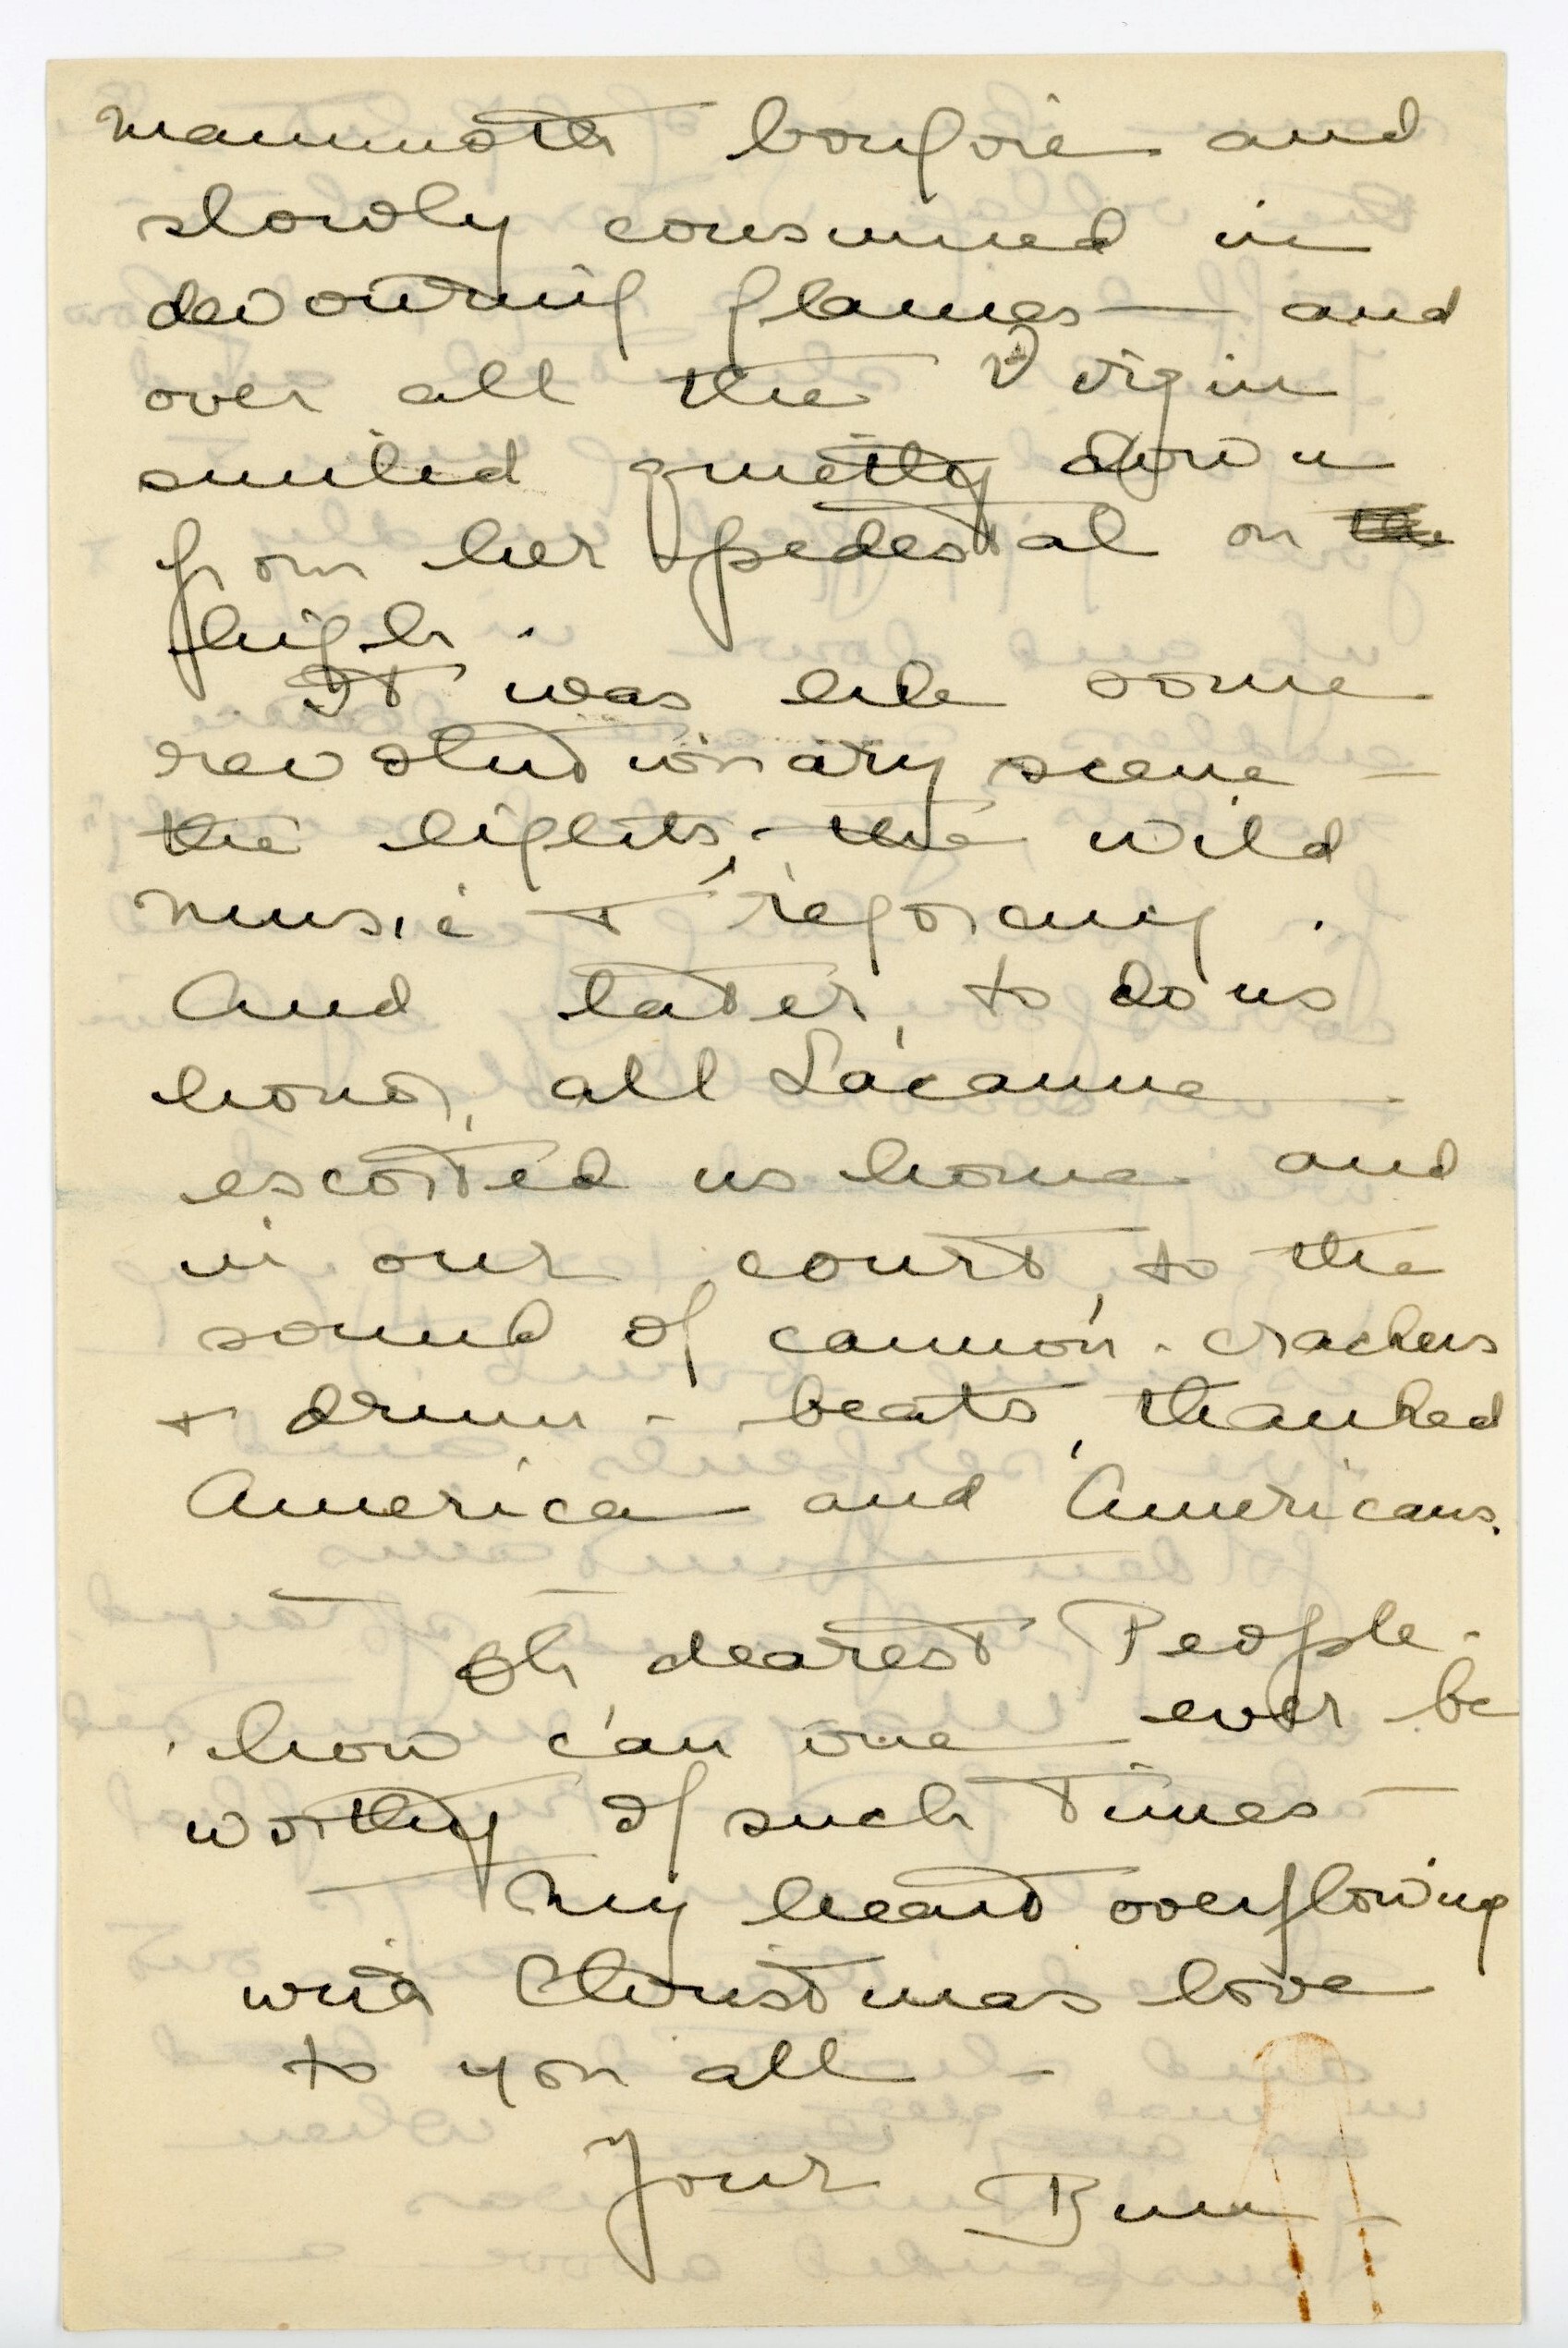 mammoth bonfire and
slowly consumed in
devouring flames — and
over all the Virgin
smiled quietly down
from her pedestal on
high.
It was like some
revolutionary scene —
the lights, - the wild
music + rejoicing.
And later, to do us
honor, all Lacanne
escorted us home and
in our court, to the
sound of cannon-crackers
+ drum-beats, thanked
America and Americans.
Oh dearest People -
how can one ever be
worthy of such times —
My heart overflowing
with Christmas love
to you all -
Your Bun -